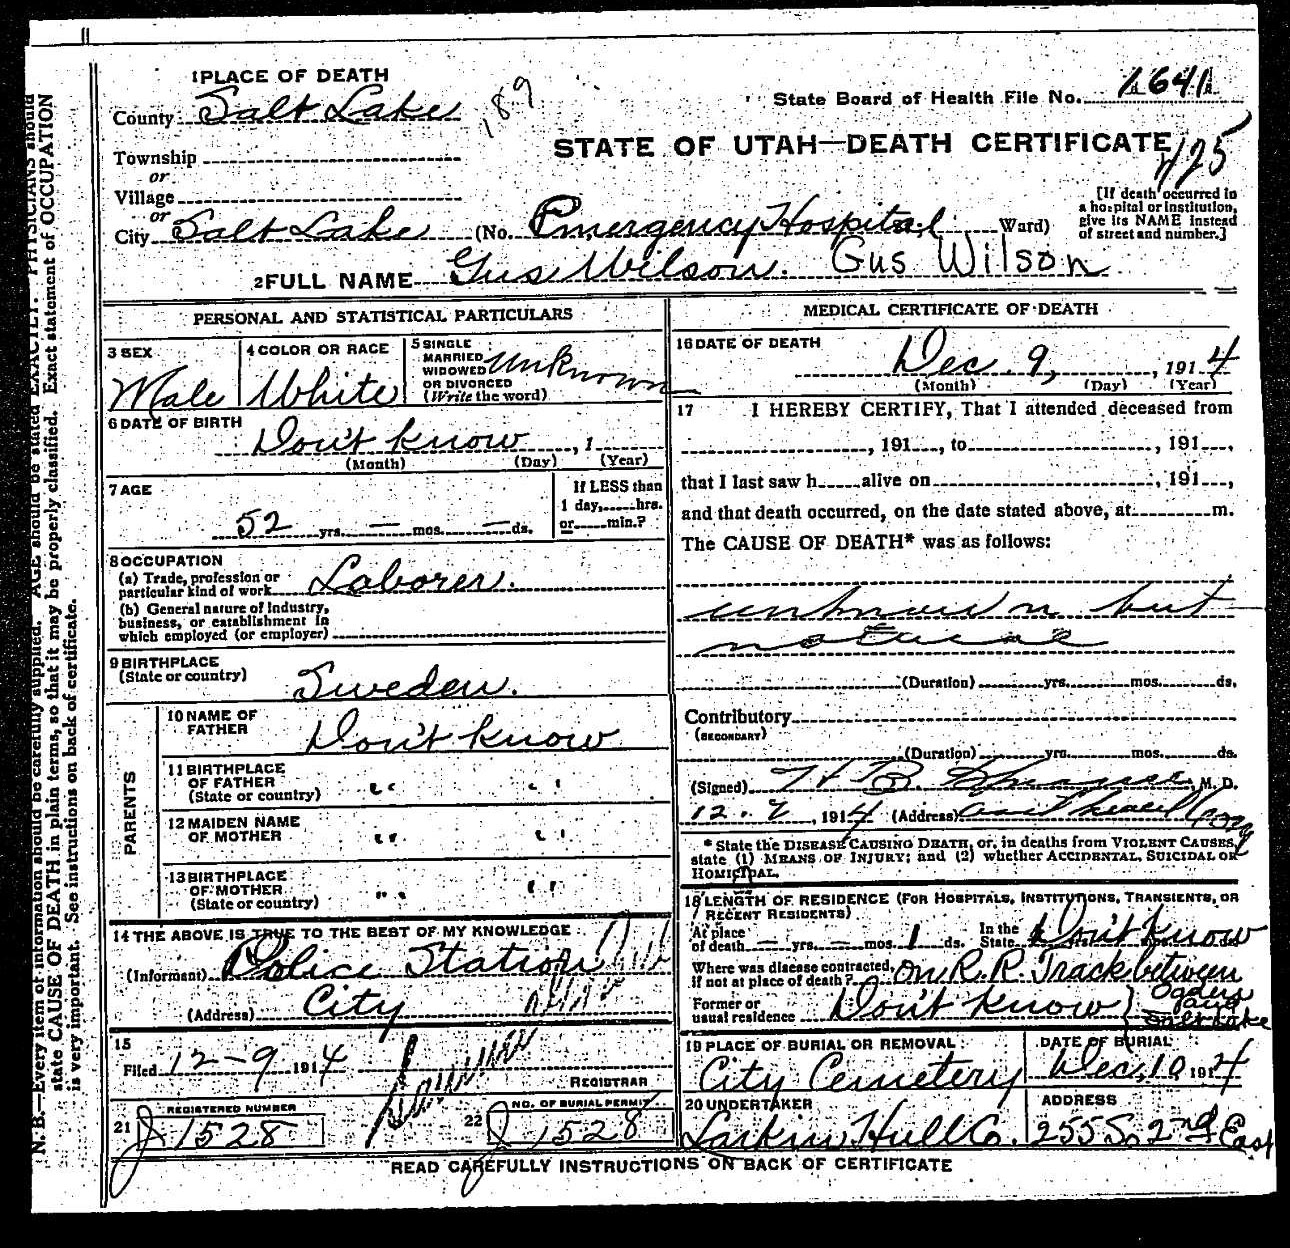 1 PLACE OF DEATH
County Salt Lake
189
State Board of Health File No. 1641
STATE OF UTAH—DEATH CERTIFICATE
425
Township
or
Village
or
City Salt Lake (No. Emergency Hospital Ward)
[If death occurred in
a hospital or institution,
give its NAME instead
of street and number.]
2 FULL NAME Gus Wilson. Gus Wilson
PERSONAL AND STATISTICAL PARTICULARS
3 SEX
Male
4 COLOR OR RACE
White
5 SINGLE
MARRIED
WIDOWED
OR DIVORCED
(Write the word)
Unknown
6 DATE OF BIRTH
Don't know , 1
(Month) (Day) (Year)
7 AGE
52 yrs. — mos. — ds.
If LESS than
1 day, hrs.
or min.?
8 OCCUPATION
(a) Trade, profession or
particular kind of work Laborer.
(b) General nature of Industry,
business, or establishment in
which employed (or employer)
9 BIRTHPLACE
(State or country)
Sweden.
PARENTS
10 NAME OF
FATHER
Don't know
11 BIRTHPLACE
OF FATHER
(State or country) " "
12 MAIDEN NAME
OF MOTHER " "
13 BIRTHPLACE
OF MOTHER
(State or country) " "
14 THE ABOVE IS TRUE TO THE BEST OF MY KNOWLEDGE
(Informant) Police Station
(Address) City
15
Filed 12-9 1914
REGISTRAR
REGISTERED NUMBER
21 J 1528
NO. OF BURIAL PERMIT
22 J 1528
MEDICAL CERTIFICATE OF DEATH
16 DATE OF DEATH
Dec. 9, , 1914
(Month) (Day) (Year)
17 I HEREBY CERTIFY, That I attended deceased from
, 191 , to , 191 ,
that I last saw h alive on , 191 ,
and that death occurred, on the date stated above, at m.
The CAUSE OF DEATH* was as follows:
unknown but
natural
(Duration) yrs. mos. ds.
Contributory
(SECONDARY)
(Duration) yrs. mos. ds.
(Signed) H B , M. D.
12. , 1914 (Address)
* State the DISEASE CAUSING DEATH, or, in deaths from VIOLENT CAUSES,
state (1) MEANS OF INJURY; and (2) whether ACCIDENTAL, SUICIDAL OR
HOMICIDAL.
18 LENGTH OF RESIDENCE (FOR HOSPITALS, INSTITUTIONS, TRANSIENTS, OR
RECENT RESIDENTS)
At place
of death — yrs. — mos. 1 ds.
In the
State Don't know
Where was disease contracted,
if not at place of death? on R. R. Track between
Ogden
and
Salt Lake
Former or
usual residence Don't know
19 PLACE OF BURIAL OR REMOVAL
City Cemetery
DATE OF BURIAL
Dec, 10 1914
20 UNDERTAKER
Larkin Hull Co.
ADDRESS
255 So. 2nd East
READ CAREFULLY INSTRUCTIONS ON BACK OF CERTIFICATE
N. B.—Every item of information should be carefully supplied. AGE should be stated EXACTLY. PHYSICIANS should
state CAUSE OF DEATH in plain terms, so that it may be properly classified. Exact statement of OCCUPATION
is very important. See instructions on back of certificate.